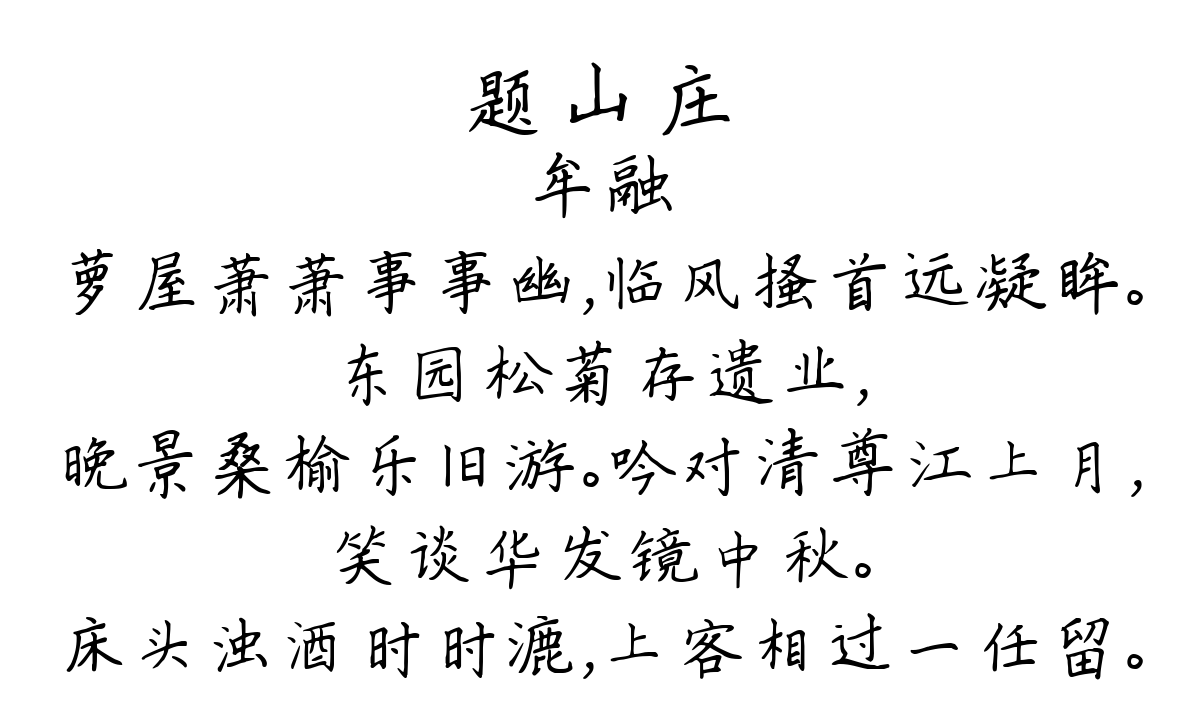 题山庄
牟融
萝屋萧萧事事幽,临风搔首远凝眸。
东园松菊存遗业,
晚景桑榆乐旧游。吟对清尊江上月,
笑谈华发镜中秋。
床头浊酒时时漉,上客相过一任留。